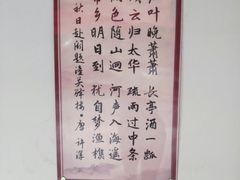 叶晚萧萧 长亭酒一瓢
云归太华 疏雨过中条
色随山迥 河声入海遥
乡明日到 犹自梦渔樵
秋日赴阙题潼关驿楼·唐 许浑